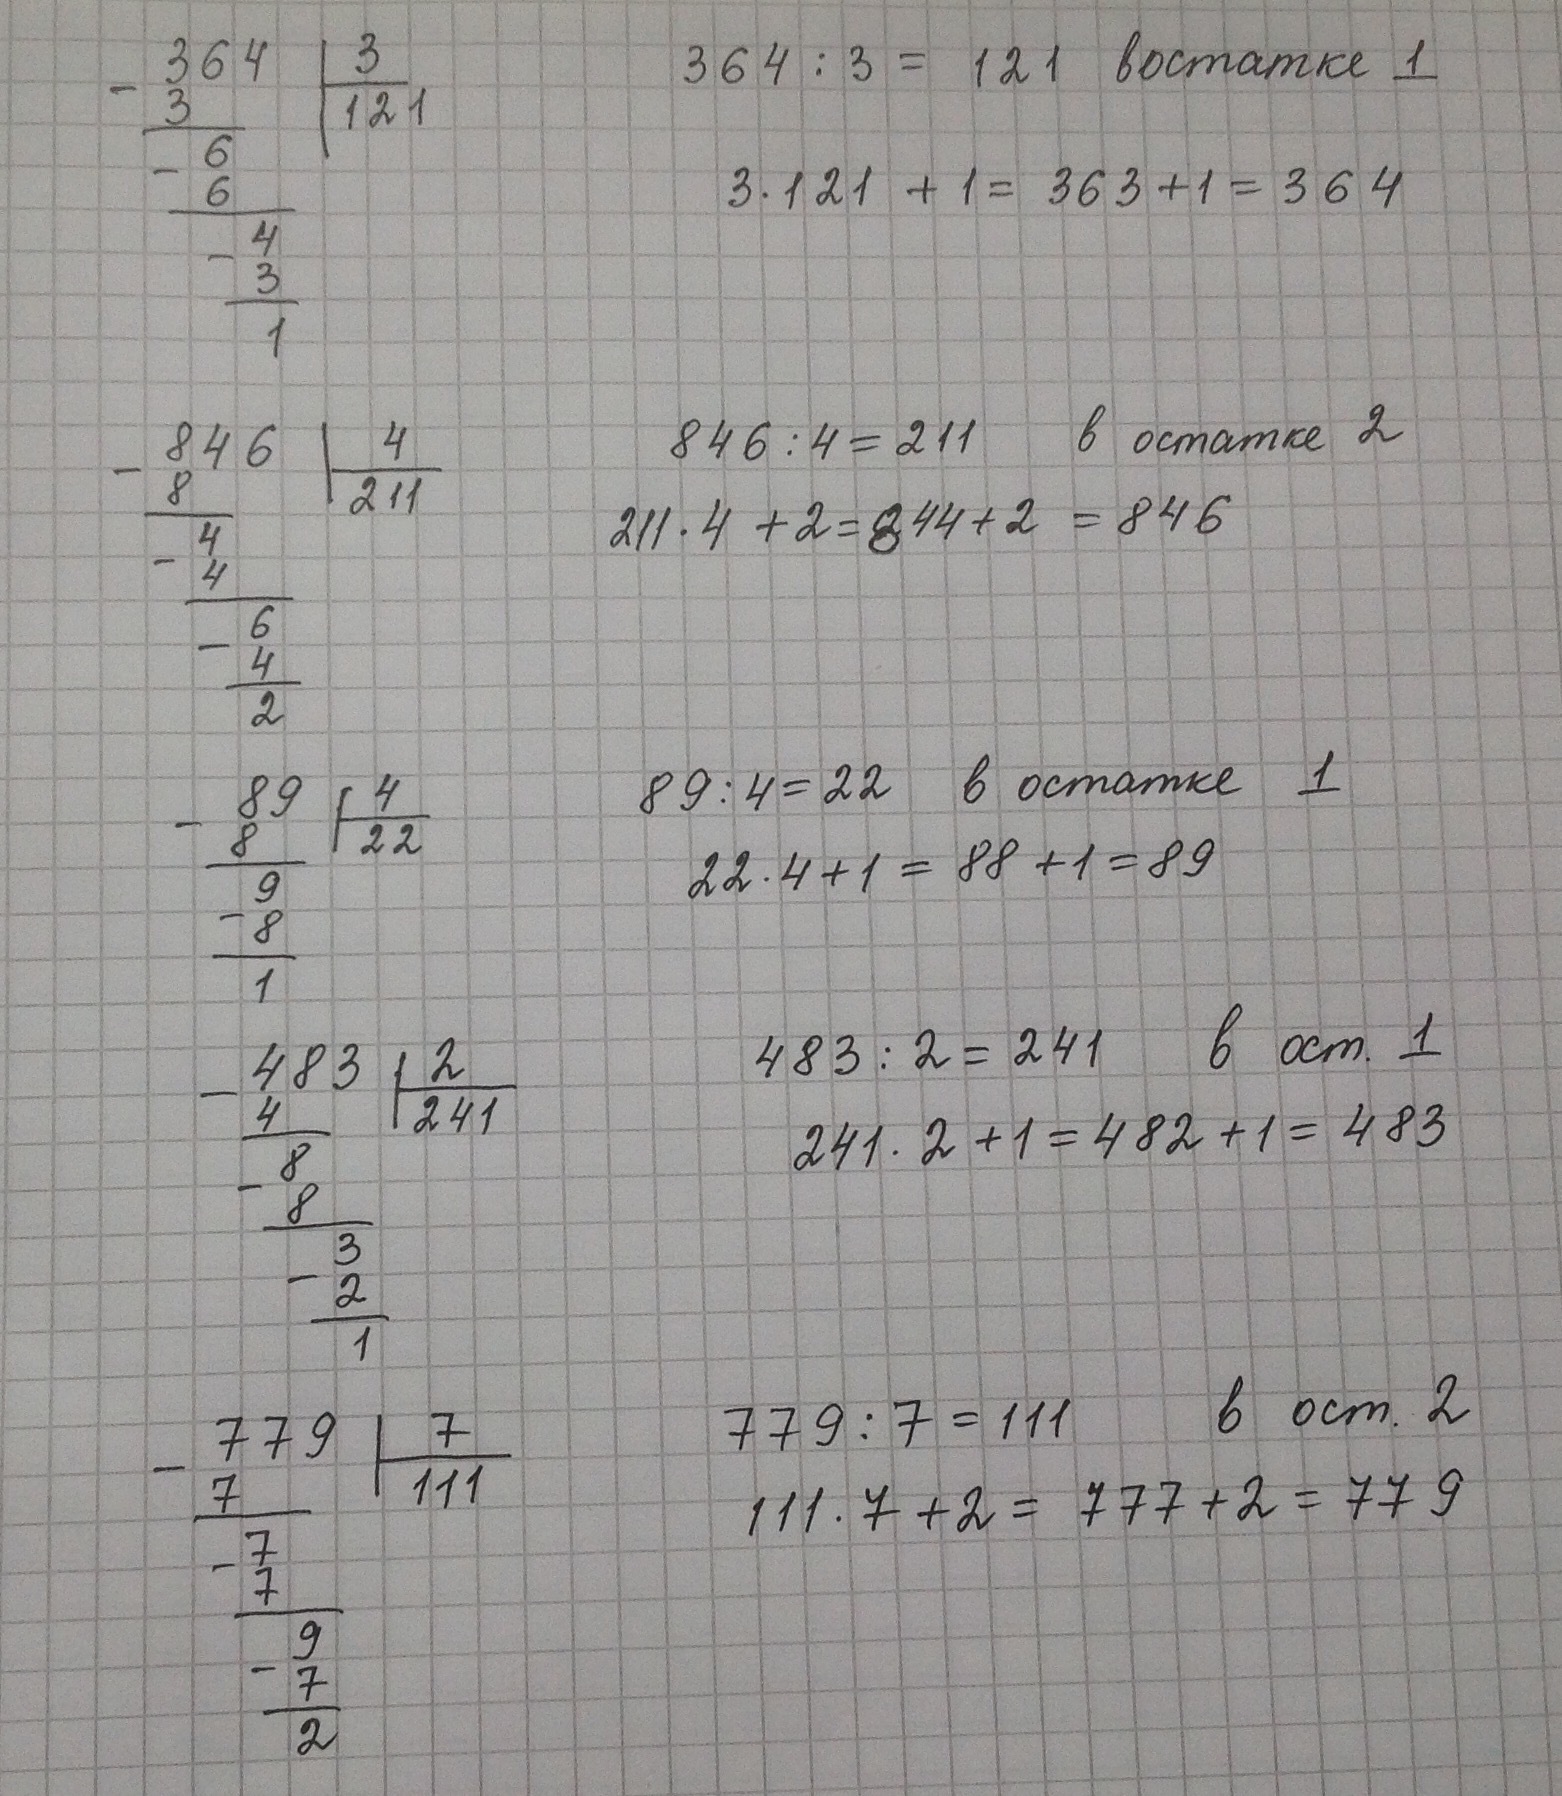 364 | 3 364 : 3 = 121 востатке 1
- 3 121
- 6 3 · 121 + 1 = 363 + 1 = 364
6
- 4
3
1
846 | 4 846 : 4 = 211 в остатке 2
- 8 211
- 4 211 · 4 + 2 = 844 + 2 = 846
4
- 6
4
2
89 | 4 89 : 4 = 22 в остатке 1
- 8 22
- 9 22 · 4 + 1 = 88 + 1 = 89
8
1
483 | 2 483 : 2 = 241 в ост. 1
- 4 241
- 8 241 · 2 + 1 = 482 + 1 = 483
8
- 3
2
1
779 | 7 779 : 7 = 111 в ост. 2
- 7 111
- 7 111 · 7 + 2 = 777 + 2 = 779
7
- 9
7
2